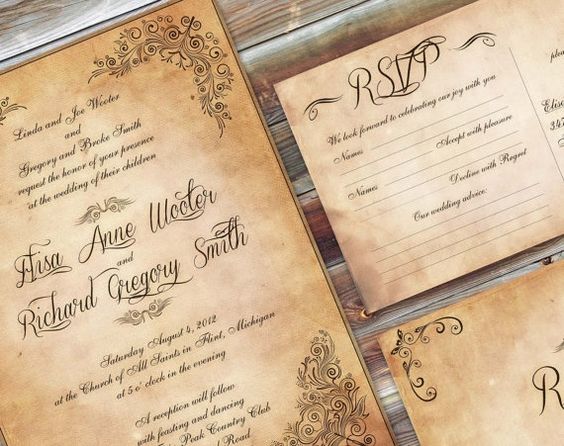 Linda and Joe Wooter
and
Gregory and Broke Smith
request the honor of your presence
at the wedding of their children
Alisa Anne Wooter
and
Richard Gregory Smith
Saturday August 4, 2012
at the Church of All Saints in Flint, Michigan
at 5 o' clock in the evening
A reception will follow
with feasting and dancing
Peak Country Club
Road
RSVP
We look forward to celebrating our joy with you
Names Accept with pleasure
Names Decline with Regret
Our wedding advice:
plea
Elise
347
R